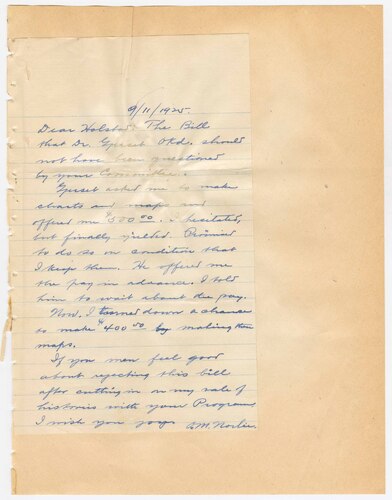 9/11/1925.
Dear Halstad: The Bill
that Dr. Gpeset Okd. should
not have been questioned
by your Committee.
Gpeset asked me to make
charts and maps and
offered me $500.00. I hesitated,
but finally yielded. Promised
to do so on condition that
I keep them. He offered me
the pay in advance. I told
him to wait about the pay.
Now. I turned down a chance
to make $400.00 by making the
maps.
If you men feel good
about rejecting this bill
after cutting in on my sale of
histories with your Programs
I wish you joy.
O.M. Norlie.